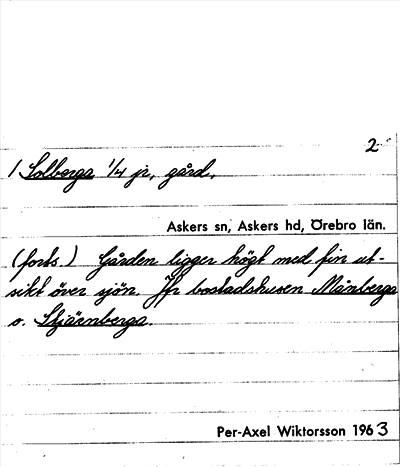 2
1 Solberga 1/4 jr, gård.
Askers sn, Askers hd, Örebro län.
(forts.) Gården ligger högt med fin ut-
sikt över sjön. Jfr bostadshusen Månberga
o. Stjärnberga.
Per-Axel Wiktorsson 1963